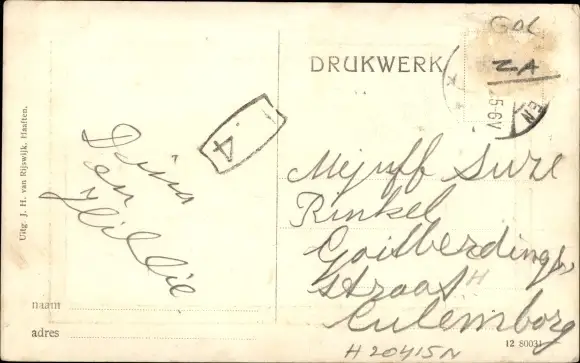 GOL
ZA
DRUKWERK
5-6V
EN
4
Uitg. J. H. van Rijswijk, Haaften.
Dina
en
Mejuff Suze
Rinkel
Goilberdinge
straat H
Culemborg
naam
adres
H 20415N
12 80031